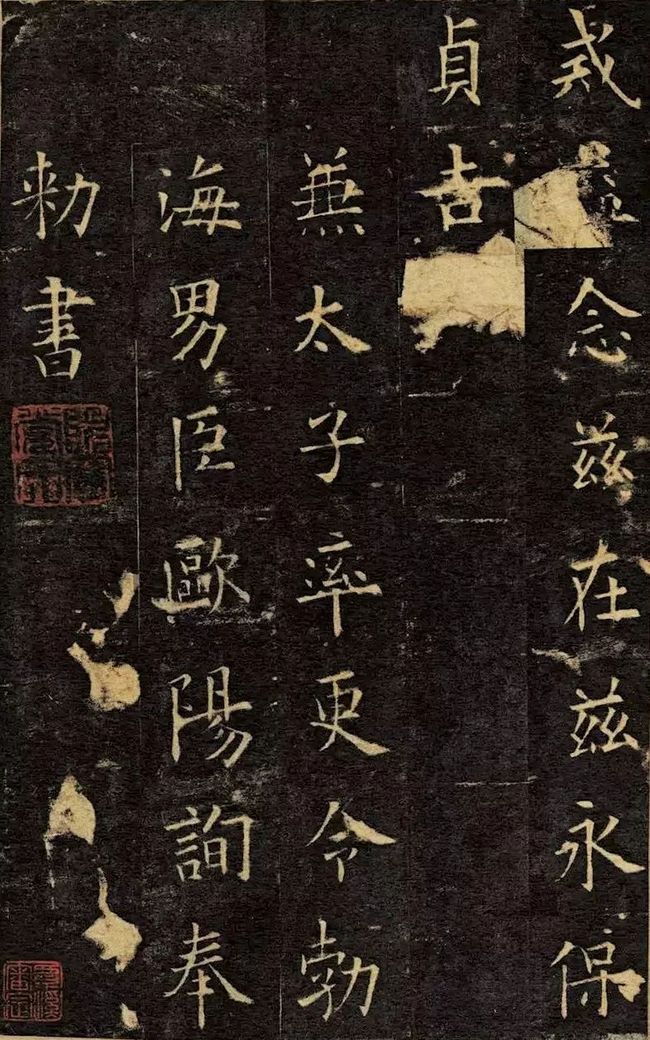 戒念兹在兹永保
貞吉
兼太子率更令勃
海男臣歐陽詢奉
勅書